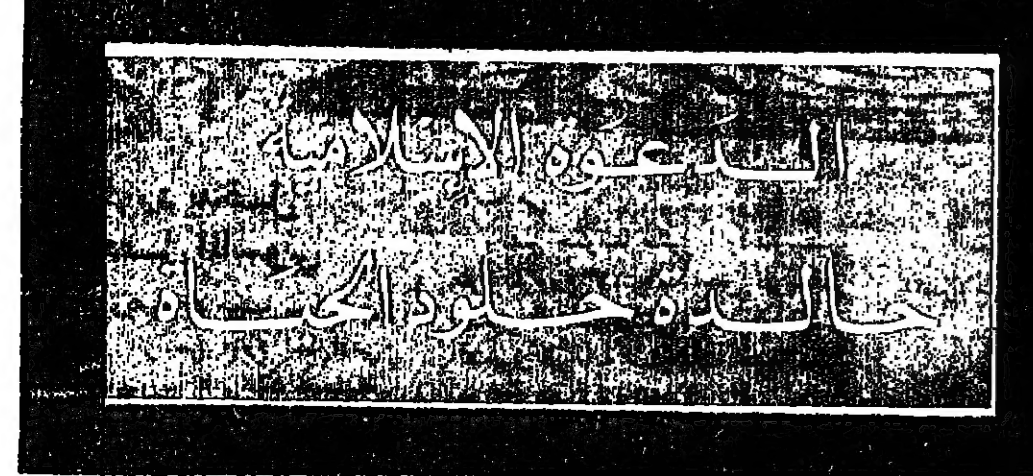 الدعوة الإسلامية
خالدة خلود الحياة